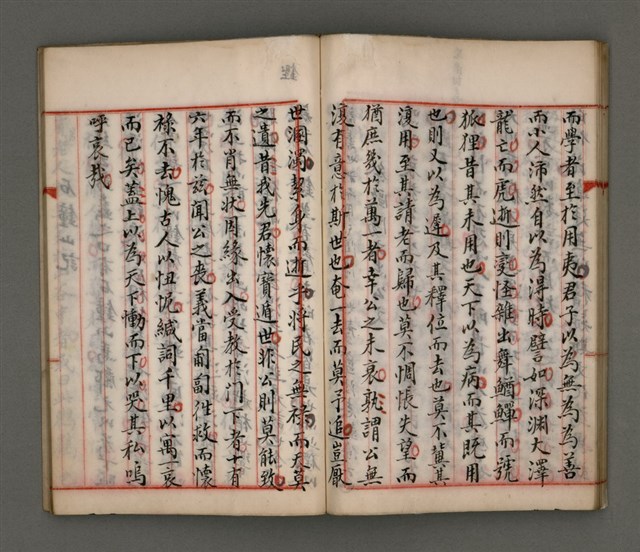 而學者至於用夷君子以為無為為善
而小人沛然自以為得時譬如深淵大澤
龍亡而虎逝則變怪雜出舞鰌鱓而號
狐狸昔其未用也天下以為病而其既用
也則又以為遲及其釋位而去也莫不冀其
復用至其請老而歸也莫不惆悵失望而
猶庶幾於萬一者幸公之未衰孰謂公無
復有意於斯世也奄一去而莫予追豈厭
世溷濁絜身而逝乎將民之無祿而天莫
之遺昔我先君懷寶遁世非公則莫能致
而不肖無状因緣出入受教於門下者十有
六年於玆聞公之喪義當匍匐徃救而懷
祿不去愧古人以忸怩緘詞千里以寓一哀
而已矣蓋上以為天下慟而下以哭其私嗚
呼哀哉